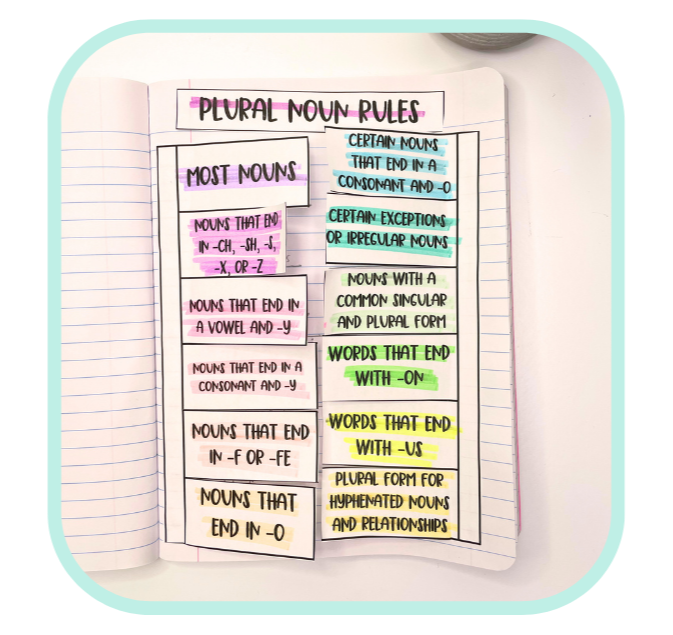 PLURAL NOUN RULES
MOST NOUNS
NOUNS THAT END
IN -CH, -SH, -S,
-X, OR -Z
NOUNS THAT END IN
A VOWEL AND -Y
NOUNS THAT END IN A
CONSONANT AND -Y
NOUNS THAT END
IN -F OR -FE
NOUNS THAT
END IN -O
CERTAIN NOUNS
THAT END IN A
CONSONANT AND -O
CERTAIN EXCEPTIONS
OR IRREGULAR NOUNS
NOUNS WITH A
COMMON SINGULAR
AND PLURAL FORM
WORDS THAT END
WITH -ON
WORDS THAT END
WITH -US
PLURAL FORM FOR
HYPHENATED NOUNS
AND RELATIONSHIPS